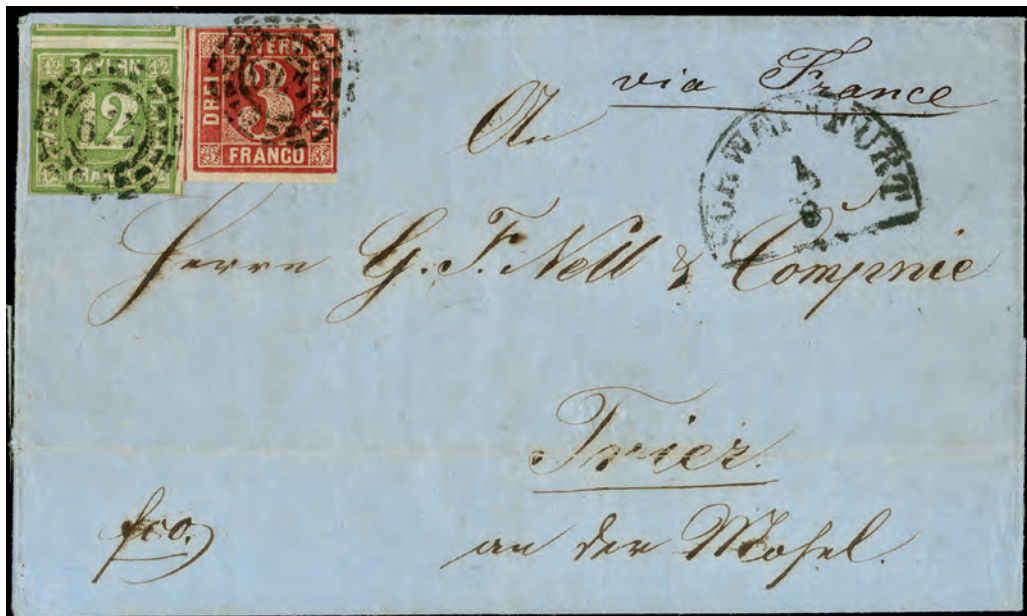 BAYERN
12
FRANCO
BAYERN
DREI
3
KREUZER
FRANCO
via France
SCHWEINFURT
An
Herrn G. F. Nell & Compnie
Trier.
an der Mosel.
fco.